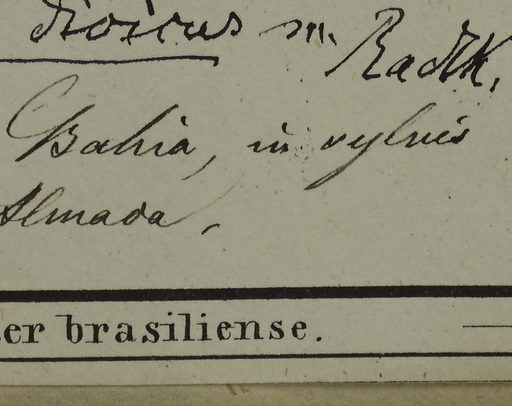 dioicus m. Radlk.
Bahia, in sylvis
Almada,
er brasiliense.